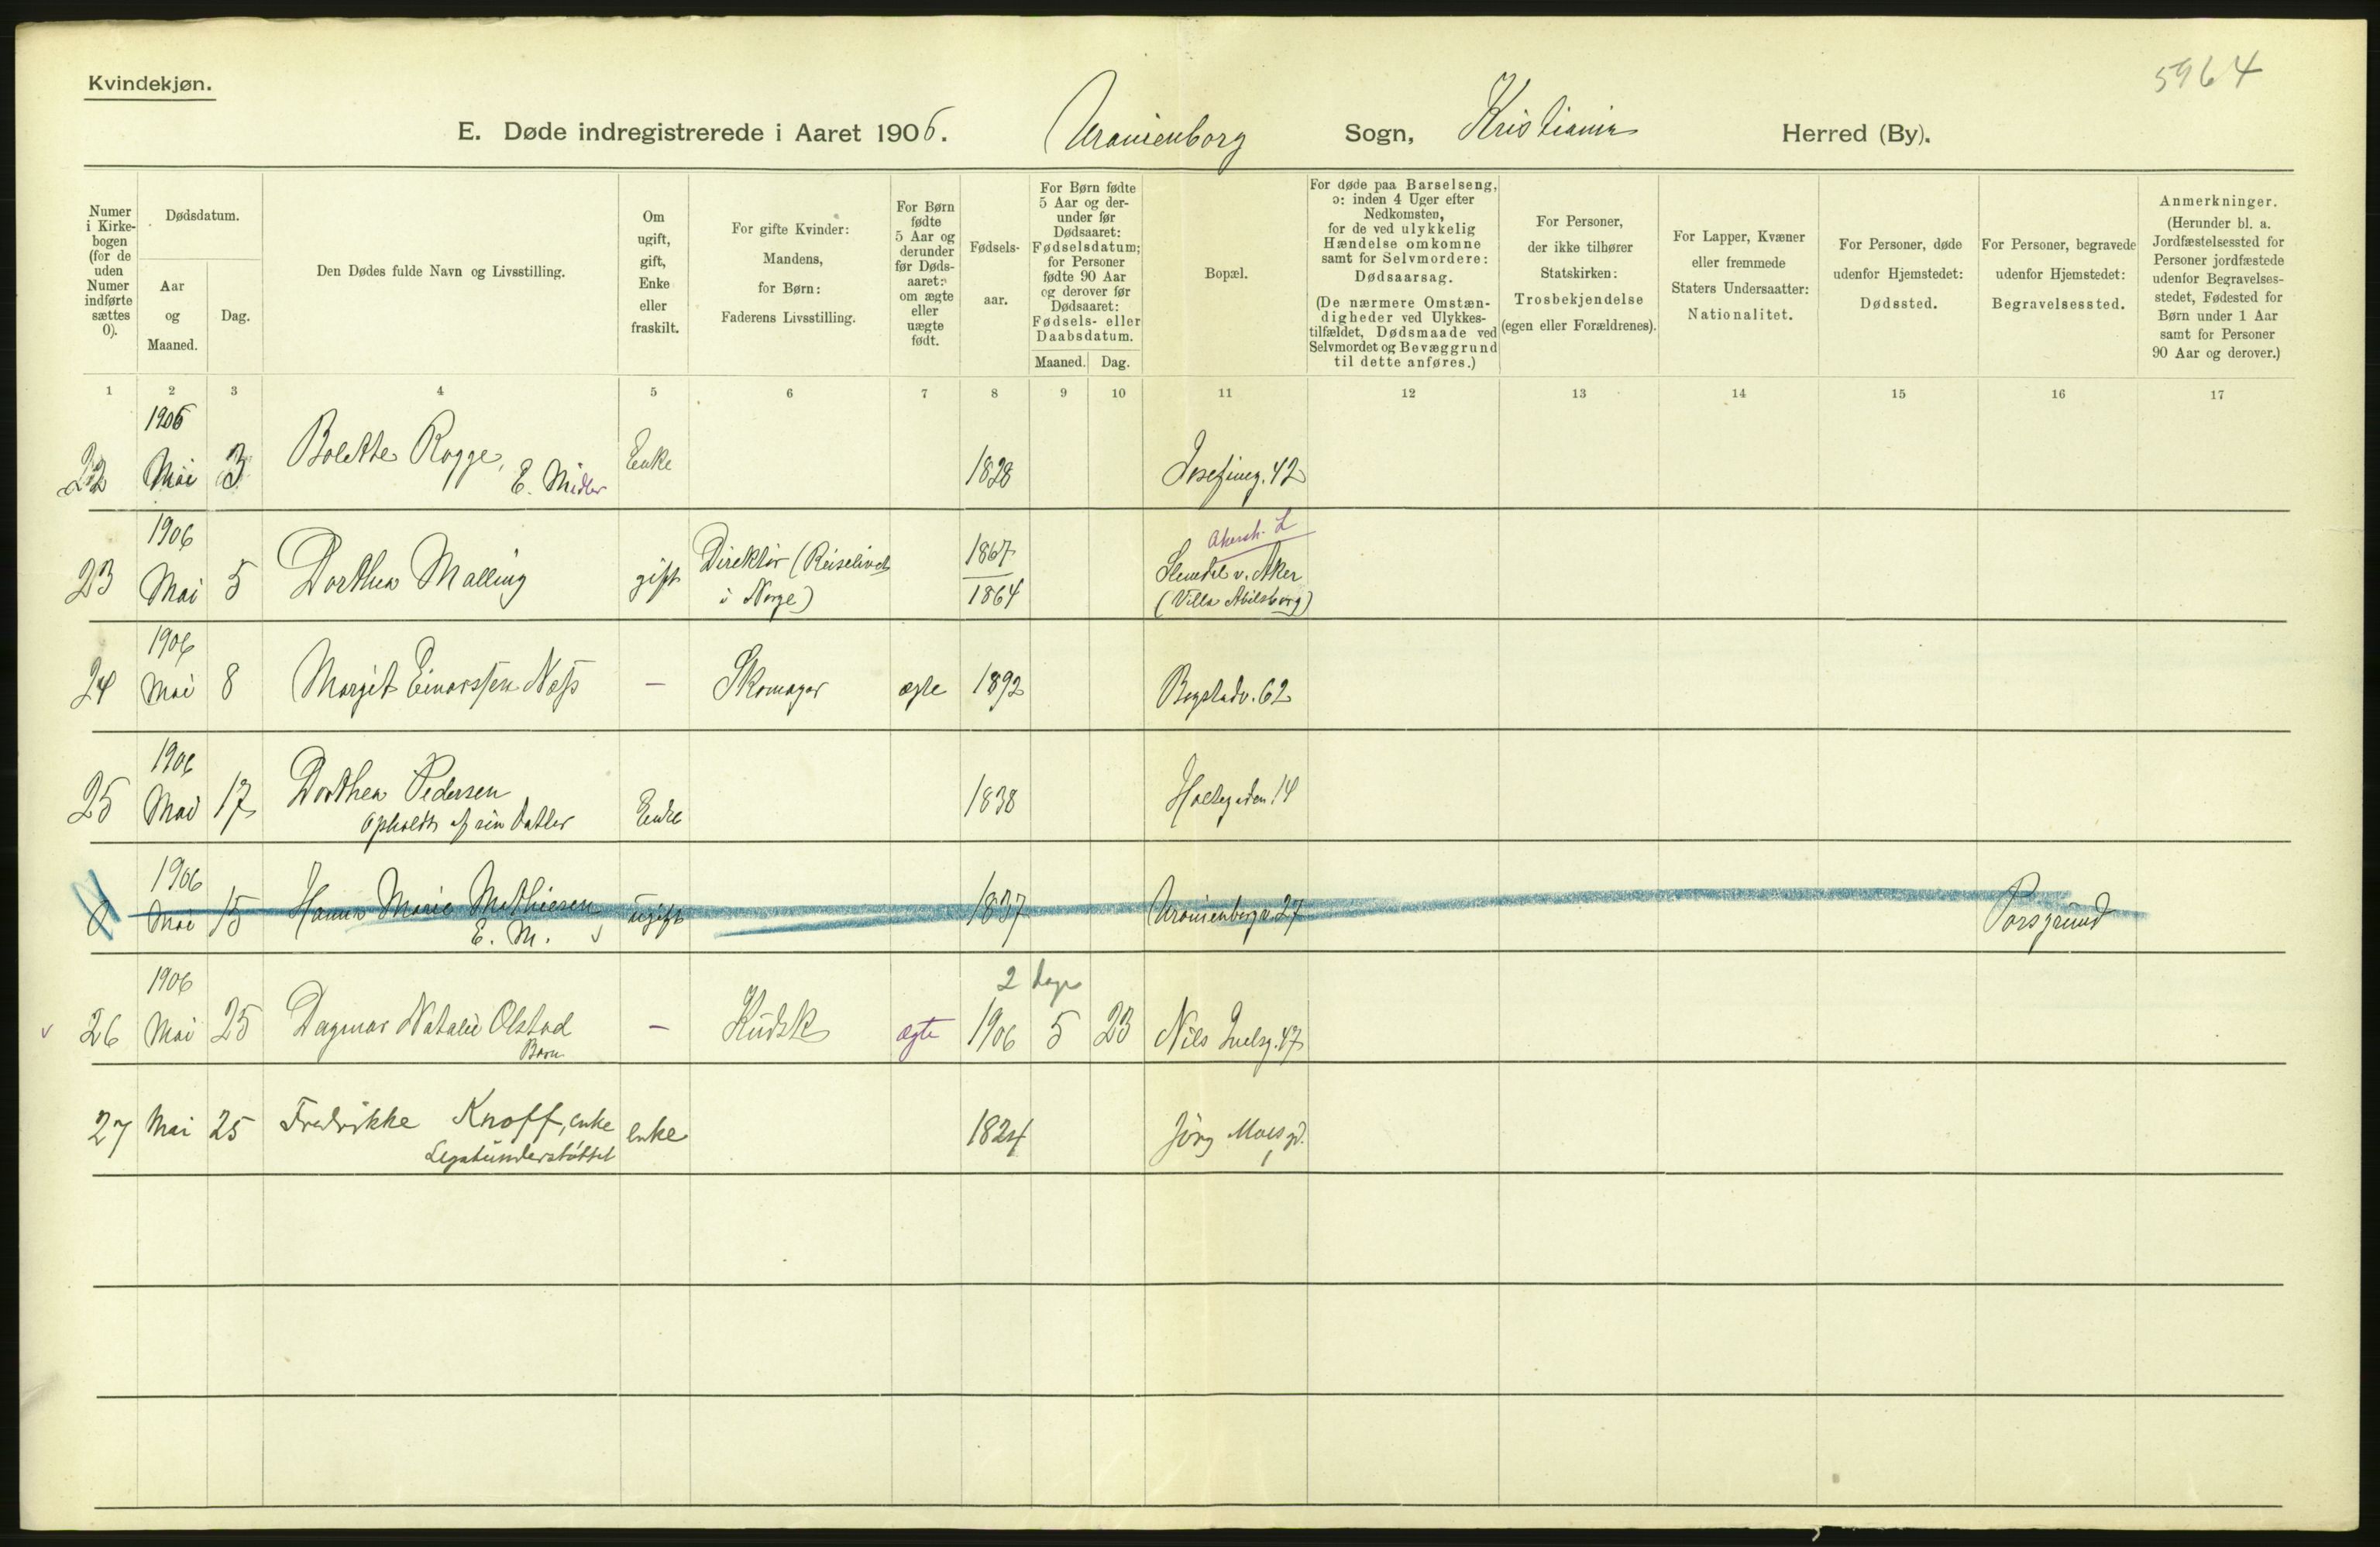 Kvindekjøn.
5964
E. Døde indregistrerede i Aaret 1906. Uranienborg Sogn, Kristiania Herred (By).
Numer i Kirkebogen (for de uden Numer indførte sættes 0).
Dødsdatum.
Aar og Maaned.
Dag.
Den Dødes fulde Navn og Livsstilling.
Om ugift, gift, Enke eller fraskilt.
For gifte Kvinder: Mandens, for Børn: Faderens Livsstilling.
For Børn fødte 5 Aar og derunder før Dødsaaret: om ægte eller uægte født.
Fødselsaar.
For Børn fødte 5 Aar og derunder før Dødsaaret: Fødselsdatum; for Personer fødte 90 Aar og derover før Dødsaaret: Fødsels- eller Daabsdatum.
Maaned. Dag.
Bopæl.
For døde paa Barselseng, ɔ: inden 4 Uger efter Nedkomsten, for de ved ulykkelig Hændelse omkomne samt for Selvmordere: Dødsaarsag.
(De nærmere Omstændigheder ved Ulykkestilfældet, Dødsmaade ved Selvmordet og Bevæggrund til dette anføres.)
For Personer, der ikke tilhører Statskirken: Trosbekjendelse (egen eller Forældrenes).
For Lapper, Kvæner eller fremmede Staters Undersaatter: Nationalitet.
For Personer, døde udenfor Hjemstedet: Dødssted.
For Personer, begravede udenfor Hjemstedet: Begravelsessted.
Anmerkninger.
(Herunder bl. a. Jordfæstelsessted for Personer jordfæstede udenfor Begravelsesstedet, Fødested for Børn under 1 Aar samt for Personer 90 Aar og derover.)
1 2 3 4 5 6 7 8 9 10 11 12 13 14 15 16 17
1906
22 Mai 3 Bolette Rogge, Enke 1828 Josefineg. 42
E. Midler
1906 Akersh. L
23 Mai 5 Dorthea Malling gift Direktør (Reiselivet 1867
i Norge) 1864
v. Aker
(Villa Abilsborg)
1906
24 Mai 8 Margit Einarssen Næss — Skomager ægte 1892 Bogstadv. 62
1906
25 Mai 17 Dorthea Pedersen Enke 1838 Holtegaden 14
Opholdt af sin Datter
1906
0 Mai 15 Hanna Marie Mathiesen ugift 1837 Uranienborgv. 27 Porsgrund
E. M.
1906 2 dage
26 Mai 25 Dagmar Natalie Olstad — Kudsk ægte 1906 5 23 Nils Juelsg. 47
Barn
27 Mai 25 Fredrikke Knoff, enke enke 1824 Jørg Moesgd. 1
Legatunderstøttet